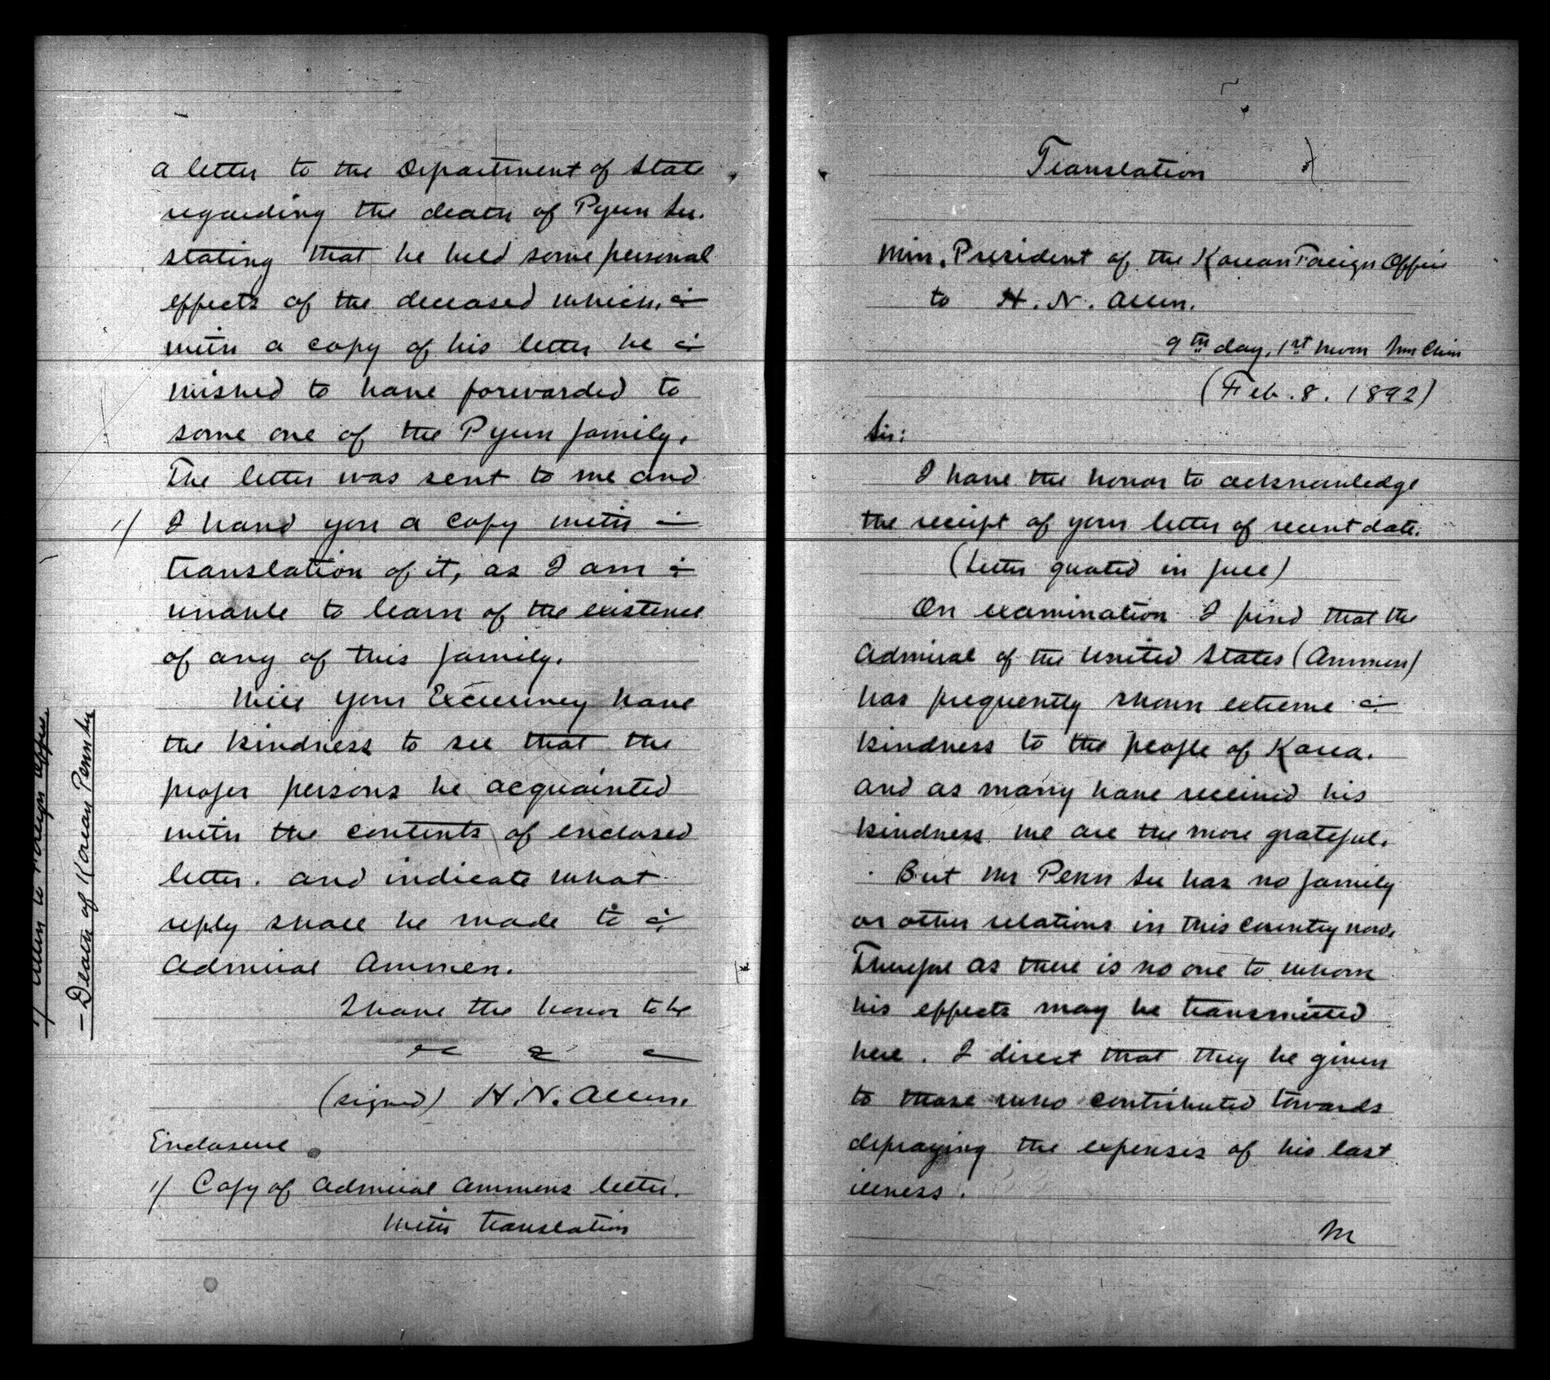 a letter to the Department of State
regarding the death of Pyun Su.
stating that he held some personal
effects of the deceased which,
with a copy of his letter he
wished to have forwarded to
some one of the Pyun family.
The letter was sent to me and
1/ I hand you a copy with
translation of it, as I am
unable to learn of the existence
of any of this family.
Will your Excellency have
the kindness to see that the
proper persons be acquainted
with the contents of enclosed
letter. and indicate what
reply shall be made to
Admiral Ammen.
I have the honor to be
&c & c
(signed) H. N. Allen.
Enclosure
1/ Copy of Admiral Ammens letter.
with translation
1/ Allen to Foreign Office.
– Death of Korean Penn Su
Translation 2/
Min, President of the Korean Foreign Office
to H. N. Allen.
9th day, 1st moon
(Feb. 8. 1892)
Sir:
I have the honor to acknowledge
the receipt of your letter of recent date.
(Letter quoted in full)
On examination I find that the
Admiral of the United States (Ammen)
has frequently shown extreme
kindness to the people of Korea.
and as many have received his
kindness we are the more grateful.
But Mr Penn Su has no family
or other relations in this country now.
Therefore as there is no one to whom
his effects may be transmitted
here. I direct that they be given
to those who contributed towards
defraying the expenses of his last
illness.
M